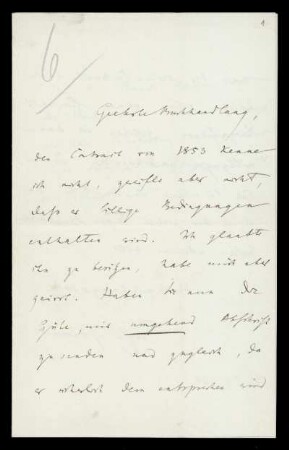 1
6
Geehrte Buchhandlung,
den Contract von 1853 kenne
ich nicht, zweifle aber nicht,
daß er billige Bedingungen
enthalten wird. Ich glaubte
ihn zu besitzen, habe mich aber
geirrt. Haben Sie nun die
Güte, mir umgehend Abschrift
zu senden und zugleich, da
er sicherlich dem entsprechen wird